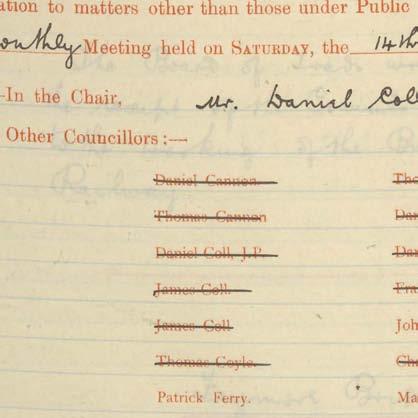 ation to matters other than those under Public
onthly Meeting held on SATURDAY, the 14th
In the Chair, Mr. Daniel Coll
Other Councillors:—
Daniel Cannon. Tho
Thomas Cannon Dan
Daniel Coll, J.P. Dan
James Coll. Fra
James Coll Joh
Thomas Coyle. Cha
Patrick Ferry. Ma